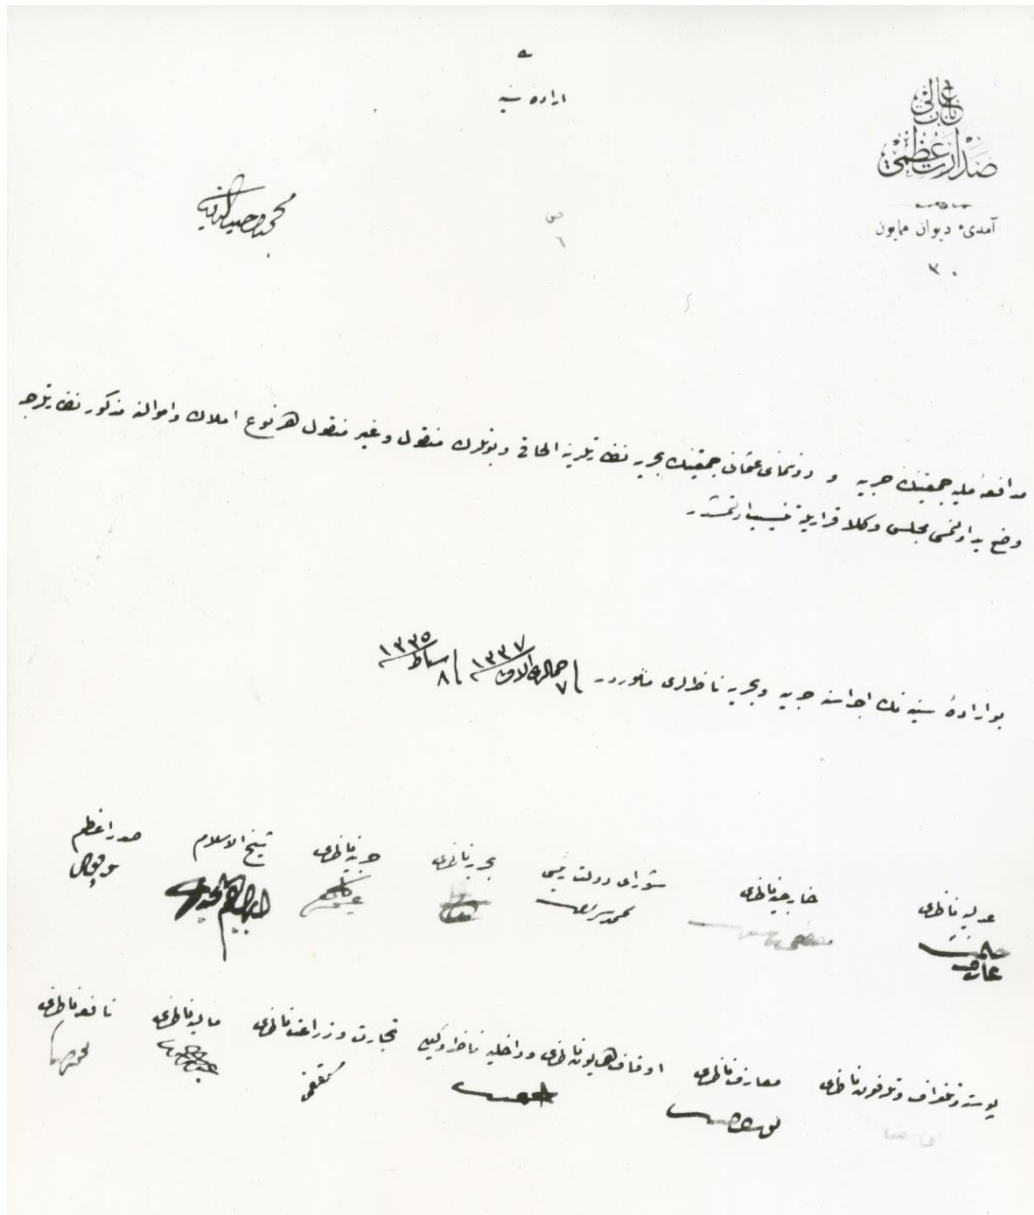 باب عالی
صدارت عظمی
آمدیء دیوان همایون
٣٠
اراده سنیه
محمد وحیدالدین
٦
مدافعه ملیه جمعیتنك حربیه و دونمای عثمانی جمعیتنك بحریه نظارتلرینه الحاقی وبونلرك منقول وغیر منقول هر نوع املاك واموالنه مذكور نظارتلرجه
وضع ید اولنمسی مجلس وكلا قراریله تنسیب اولنمشدر
بو ارادهٔ سنیه نك اجراسنه حربیه وبحریه ناظرلری مأموردر ٧ جمادی الاولی ١٣٣٧ ٨ شباط ١٣٣٥
صدر اعظم شیخ الاسلام حربیه ناظری بحریه ناظری شورای دولت رئیسی خارجیه ناظری عدلیه ناظری
توفیق ابراهیم
نافعه ناظری مالیه ناظری تجارت وزراعت ناظری اوقاف همایون ناظری وداخلیه ناظر وكیلی معارف ناظری پوسته وتلغراف وتلفون ناظری